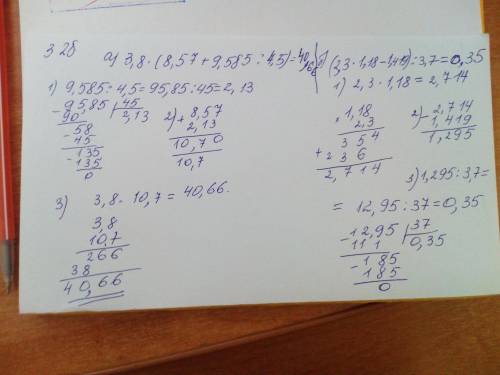 328
а) 3,8 · (8,57 + 9,585 : 4,5) = 40,66
1) 9,585 : 4,5 = 95,85 : 45 = 2,13
- 95,85 | 45
90 2,13
- 58
45
- 135
- 135
0
2) + 8,57
2,13
10,70
10,7
3) 3,8 · 10,7 = 40,66.
3,8
10,7
266
38
40,66
(2,3 · 1,18 - 1,419) : 3,7 = 0,35
1) 2,3 · 1,18 = 2,714
× 1,18
2,3
3 5 4
+ 2 3 6
2,7 1 4
2) - 2,714
1,419
1,295
3) 1,295 : 3,7 =
= 12,95 : 37 = 0,35
- 12,95 | 37
11 1 0,35
- 1 85
1 85
0